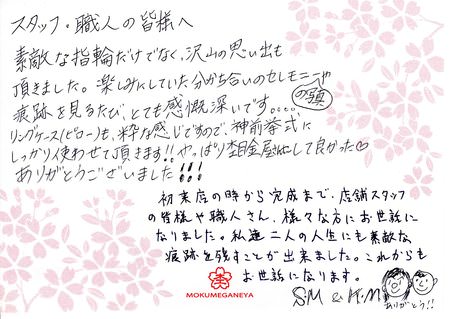 スタッフ・職人の皆様へ
素敵な指輪だけでなく、沢山の思い出も
頂きました。楽しみにしていた分かち合いのセレモニーや
の写真
痕跡を見るたび、とても感慨深いです。。。。
リングケース(ピロー)も、粋な感じですので、神前挙式に
しっかり使わせて頂きます!!やっぱり杢目金屋にして良かった♡
ありがとうございました!!!
初来店の時から完成まで、店舗スタッフ
の皆様や職人さん、様々な方にお世話に
なりました。私達二人の人生にも素敵な
痕跡を残すことが出来ました。これからも
お世話になります。
S.M & H.M
ありがとう!!
MOKUMEGANEYA